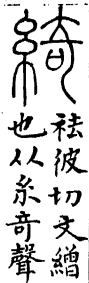 綺
袪彼切文繒
也从糸奇聲